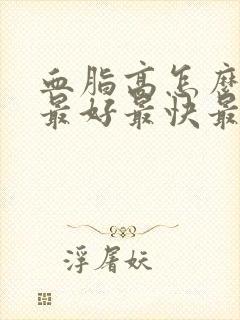 血脂高怎麽
最好最快最
浮屠妖